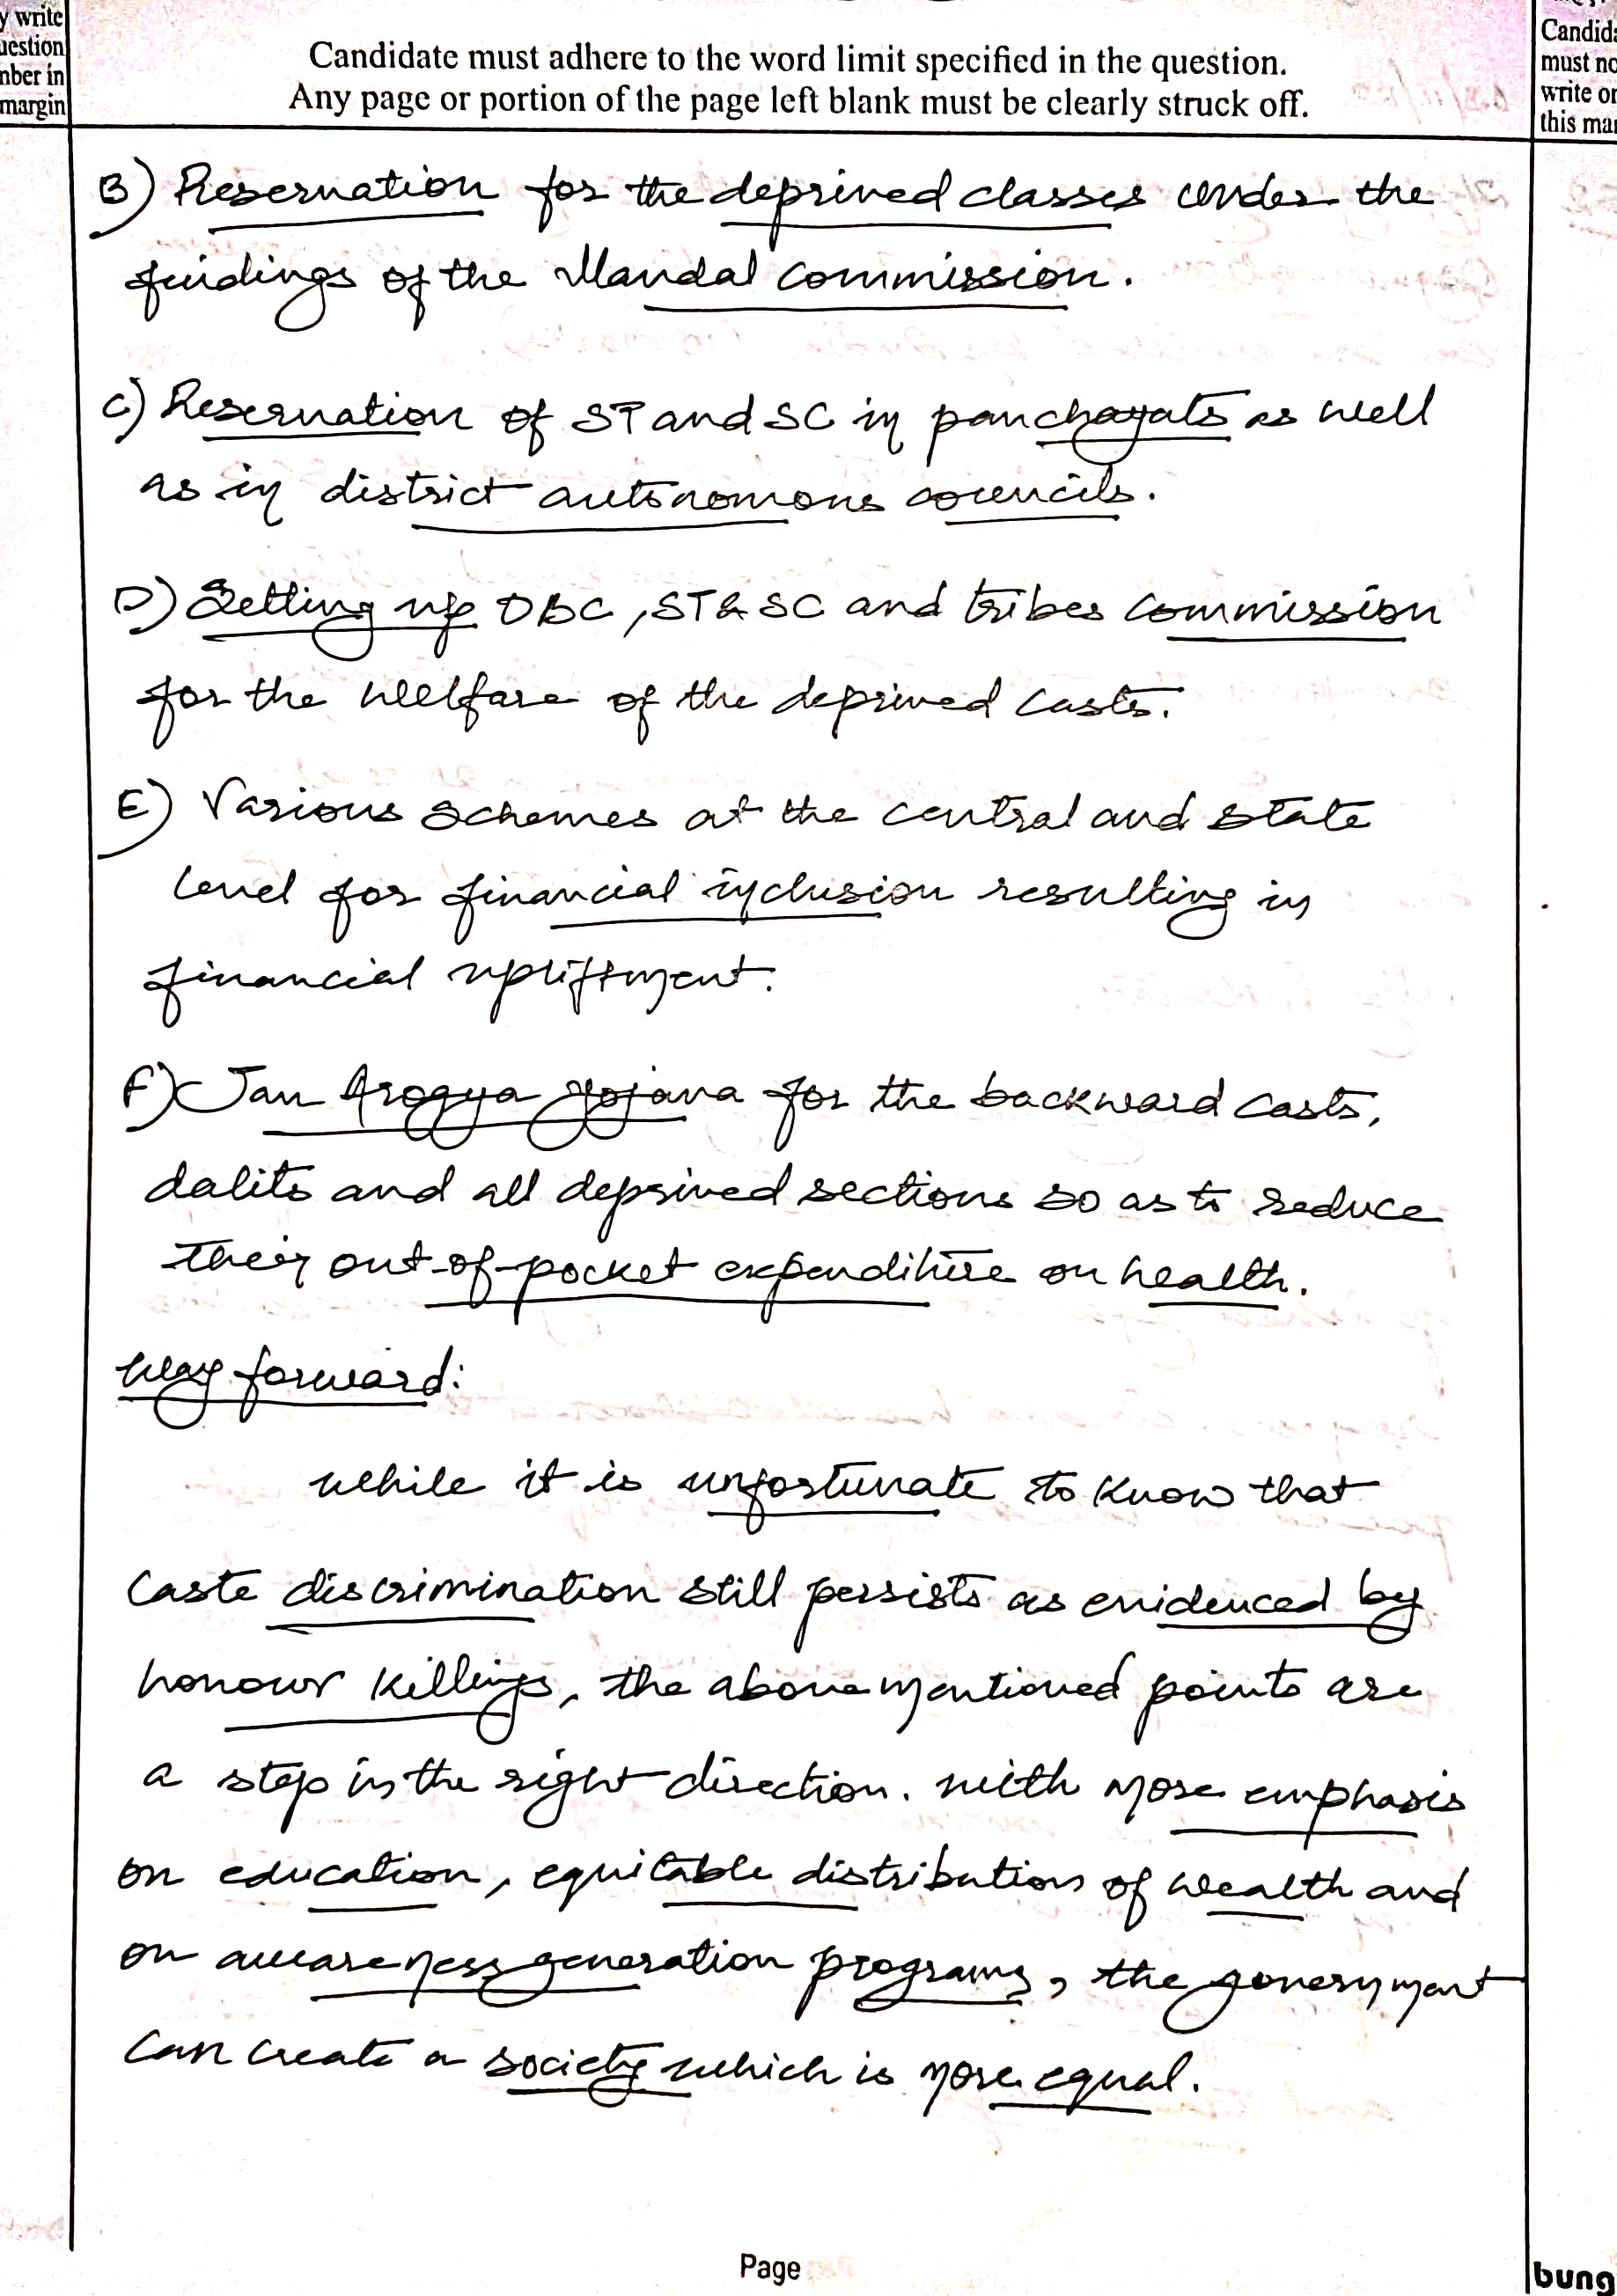 y write
uestion
nber in
margin
Candidate must adhere to the word limit specified in the question.
Any page or portion of the page left blank must be clearly struck off.
Candida
must no
write on
this mar
B) Reservation for the deprived classes under the
findings of the Mandal commission.
C) Reservation of ST and SC in panchayats as well
as in district autonomous councils.
D) Setting up OBC, ST & SC and tribes commission
for the welfare of the deprived casts.
E) Various schemes at the central and state
level for financial inclusion resulting in
financial upliftment.
F) Jan Arogya Yojana for the backward casts,
dalits and all deprived sections so as to reduce
their out-of-pocket expenditure on health.
Way forward:
while it is unfortunate to know that
caste discrimination still persists as evidenced by
honour killings, the above mentioned points are
a step in the right direction. with more emphasis
on education, equitable distribution of wealth and
on awareness generation programs, the government
can create a society which is more equal.
Page
bung